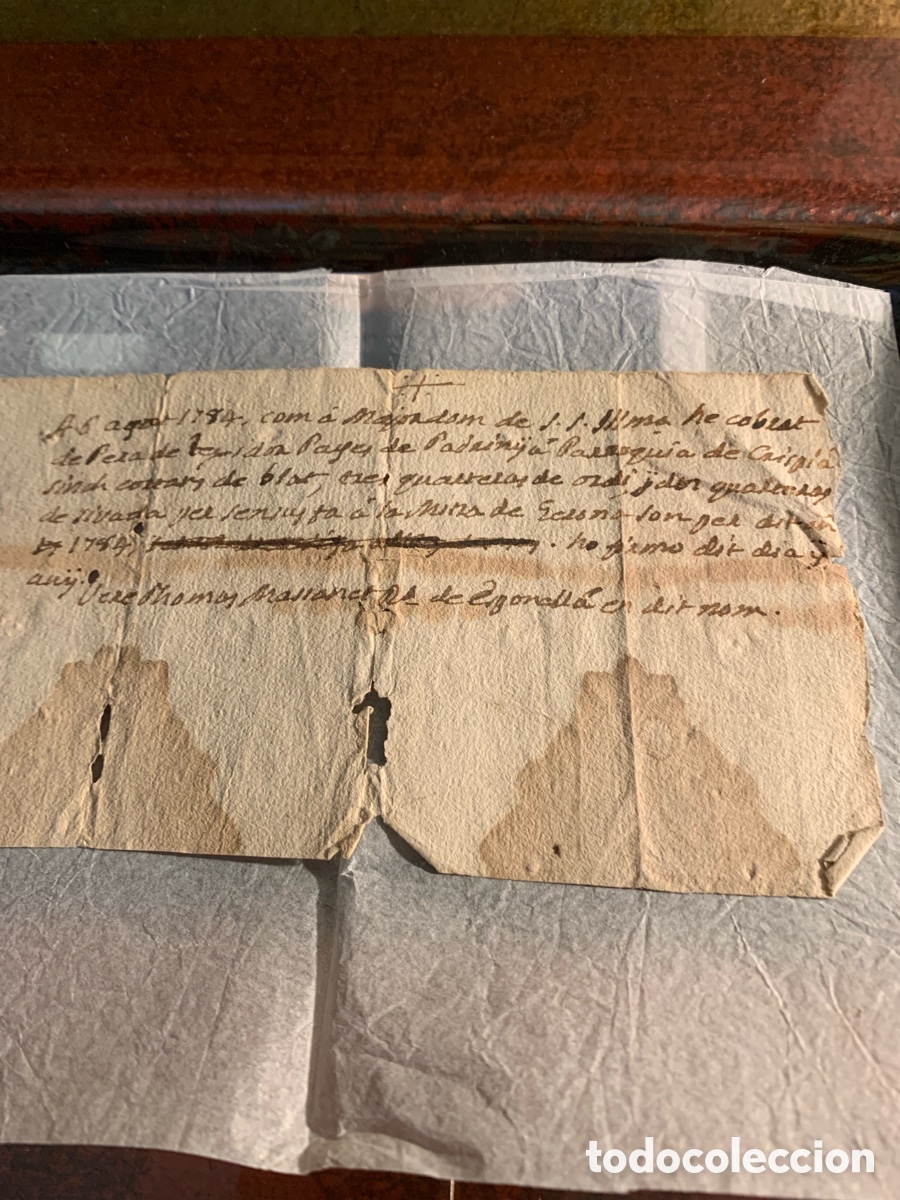 +
A 6 agost 1784. com á Majordom de S. S. Illma he cobrat
de Pera de Pages de Padrinyá Parroquia de Crispiá
sinch cortars de blat, tres quarteras de ordi, y dos quarteras
de sivada per sens fa á la Mitra de Gerona son per dit
1784, ho firmo dit dia y
any.
Pere Thomas Massanet de Esponellá en dit nom.
todocoleccion